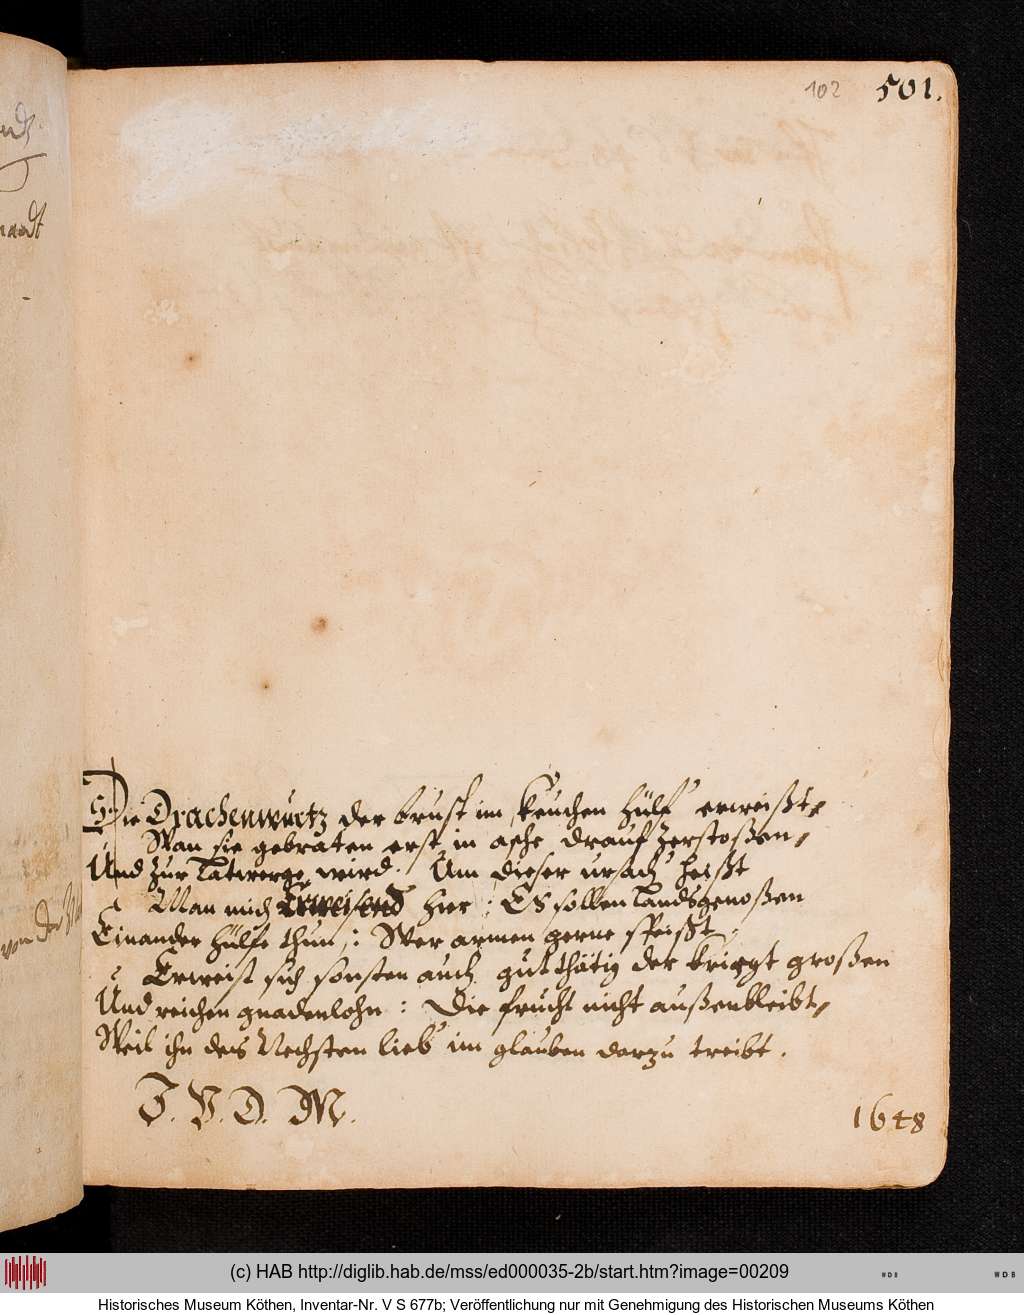 102 501.
Die Drachenwurtz der brust im Keuchen hülf' erweißt,
Wan sie gebraten erst in asche drauf zerstoßen,
Und zur Latwerge wird. Um dieser ursach' heißt
Man mich Erweisend hier: Es sollen Landsgenoßen
Einander hülfe thun: Wer armen gerne speißt,
Erweist sich sonsten auch gutthätig der kriegt großen
Und reichen gnadenlohn: Die frucht nicht außenbleibt,
Weil ihn des Nechsten lieb' im glauben darzu treibt.
J. V. D. M.
1648
von der
(c) HAB http://diglib.hab.de/mss/ed000035-2b/start.htm?image=00209
WDB
WDB
Historisches Museum Köthen, Inventar-Nr. V S 677b; Veröffentlichung nur mit Genehmigung des Historischen Museums Köthen